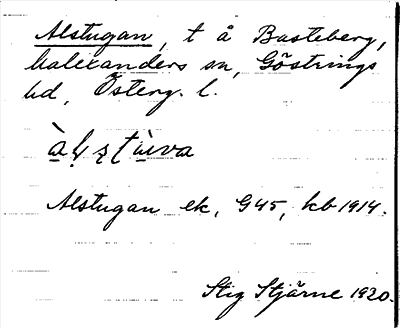 Alstugan, t å Basteberg,
Kalexanders sn, Göstrings
hd, Österg. l.
Alstugan ek, G45, kb 1914.
Stig Stjärne 1920.